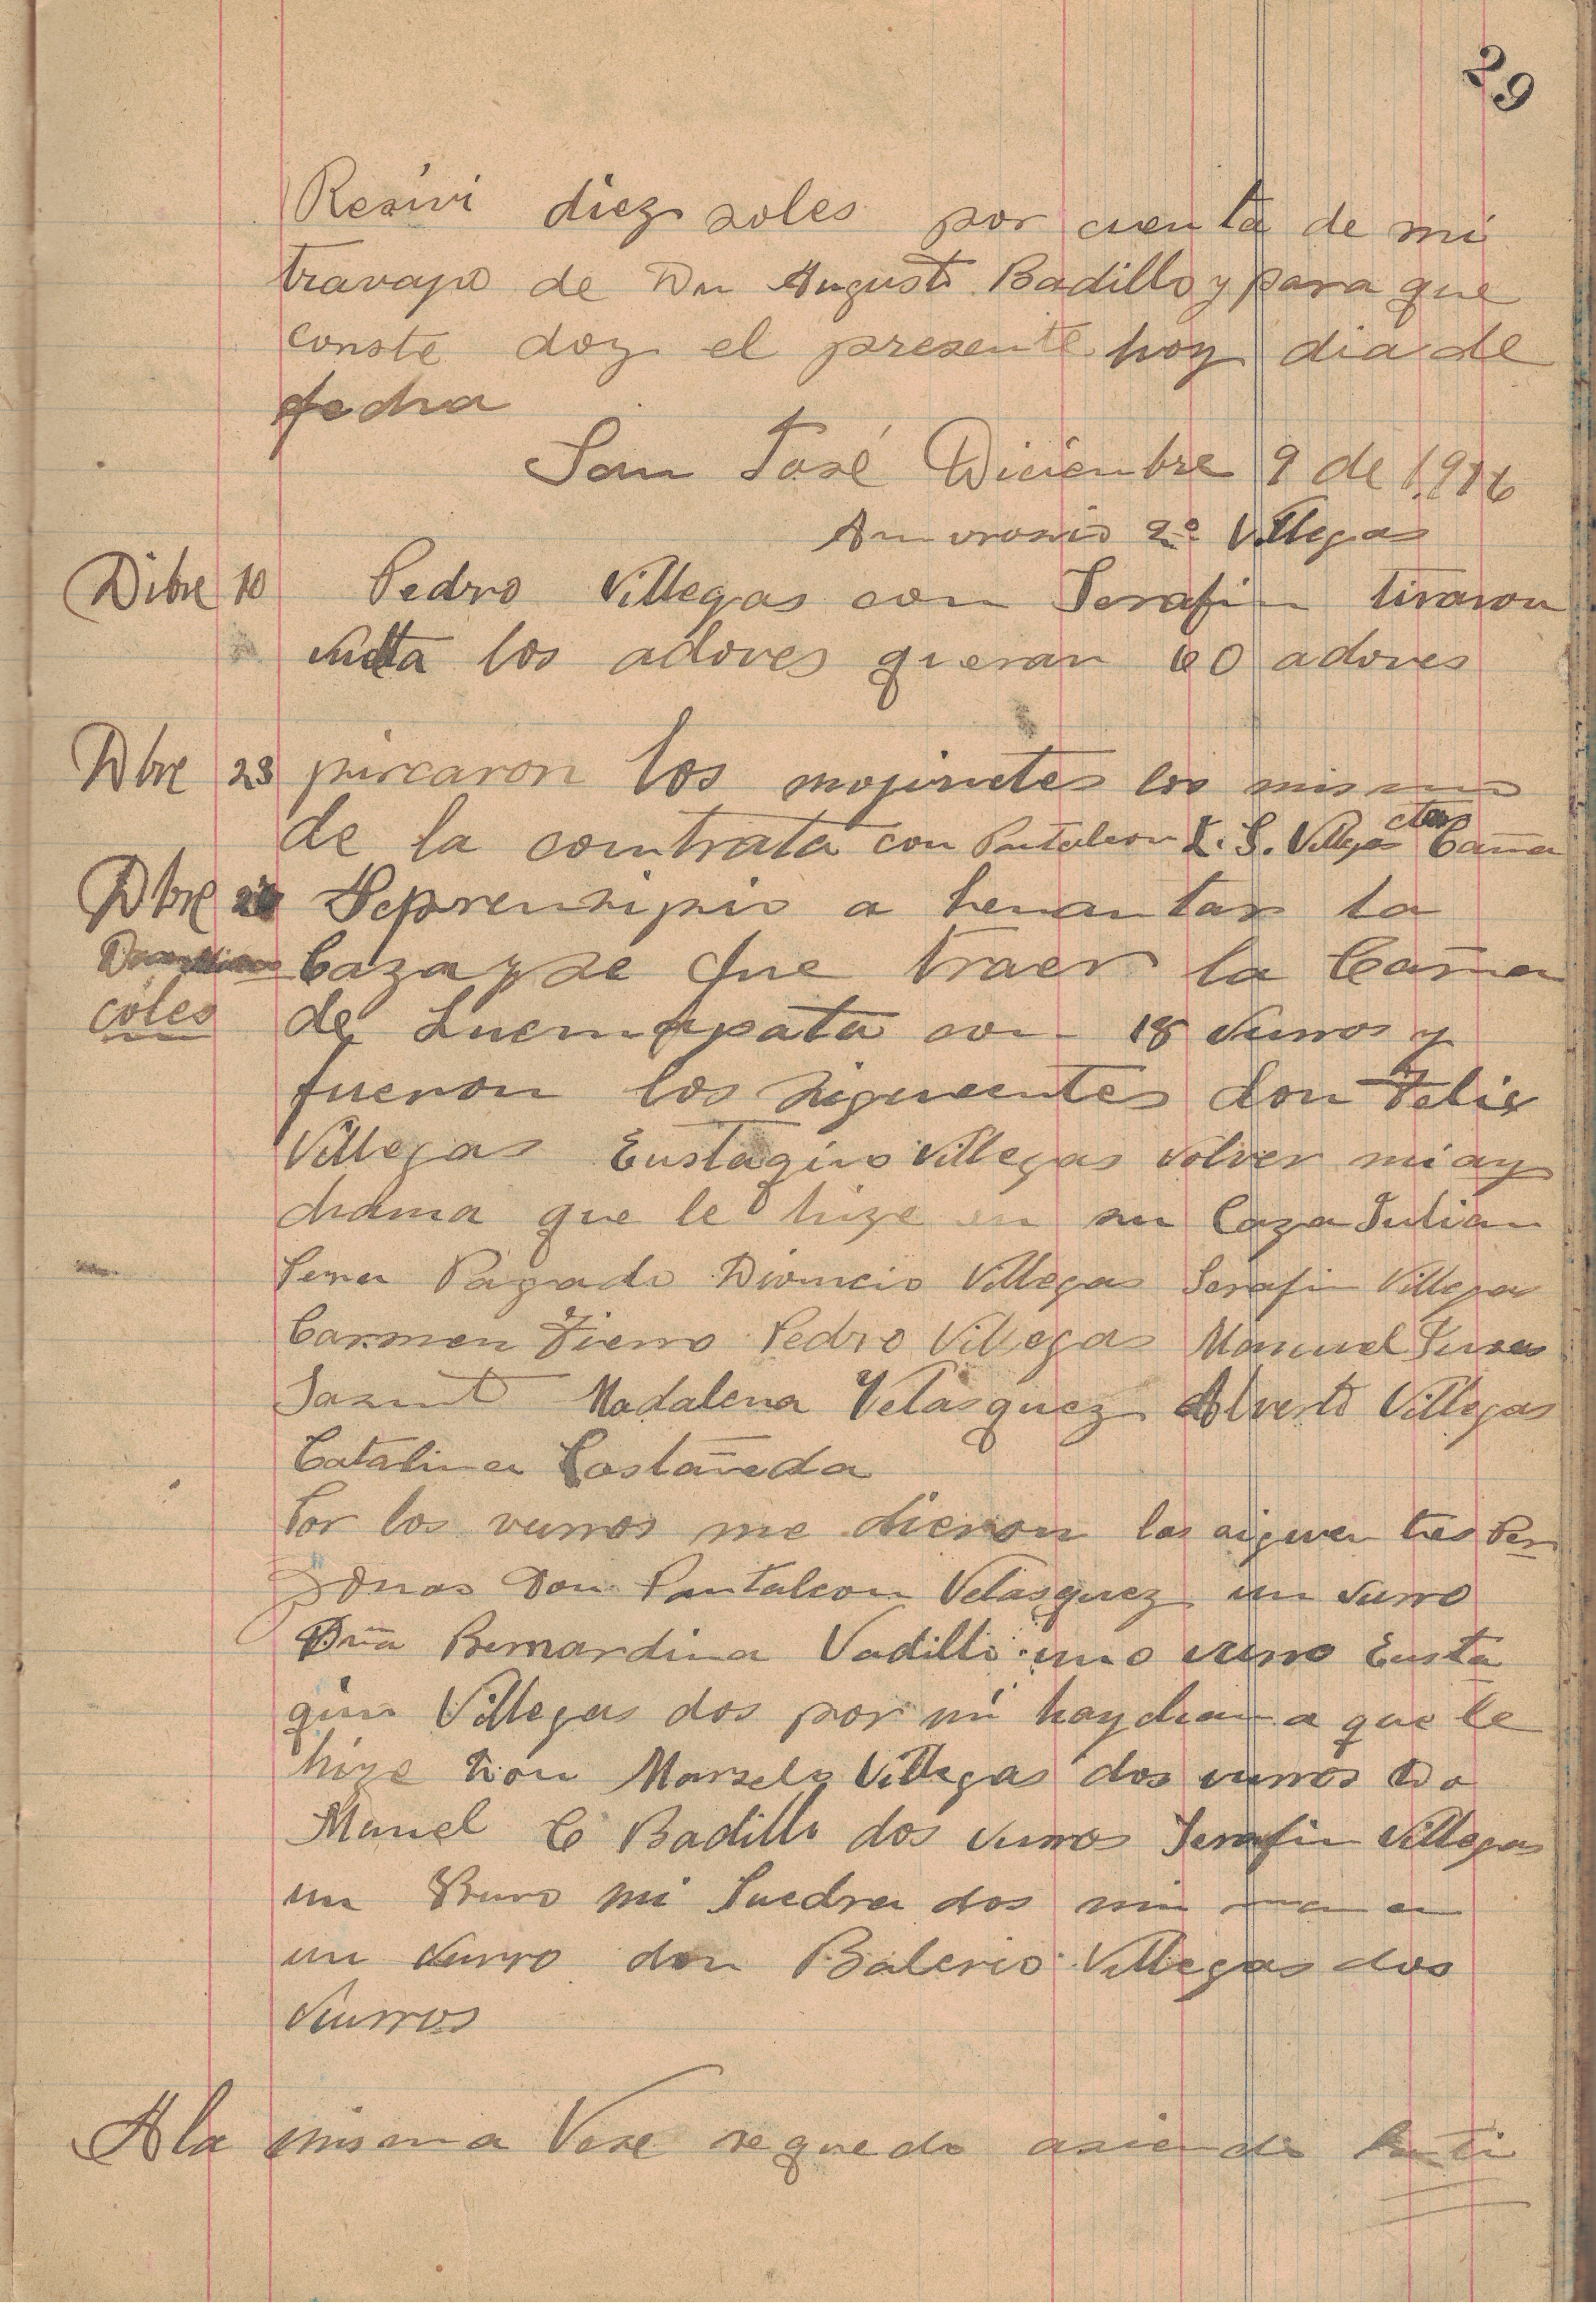 29
Resivi diez soles por cuenta de mi
travajo de Dn Augusto Badillo y para que
conste doy el presente hoy dia de
fecha
San José Diciembre 9 de 1916
Amvrosio 2º Villegas
Dibre 10 Pedro Villegas con Serafin tiraron
los adoves queran 60 adoves
Dbre 23 pircaron los mojinetes los mismo
de la contrata con Pantaleon S. Villegas Caña
Dbre Seprensipio a levantar la
Caza y se fue traer la Caña
coles de Lucmapata con 18 vurros y
fueron los siguientes don Felis
Villegas Eustaqino Villegas volver mi ay
chama que le hize en su Caza Julian
Pagado Dioncio Villegas Serafin Villegas
Carmen Fierro Pedro Villegas Manuel
Madalena Velasquez Alverto Villegas
Catalina Castañeda
Por los vurros me dieron las siguen tes Per
zonas Don Pantaleon Velasquez un vurro
Dña Bernardina Vadillo uno vurro Eusta
quio Villegas dos por mi haychama que le
hize Don Marselo Villegas dos vurros Do
Manuel C Badillo dos vurros Serafin Villegas
un Burro mi Suedra dos mi mama
un vurro don Balerio Villegas dos
vurros
A la misma Vese se quedo asiendo